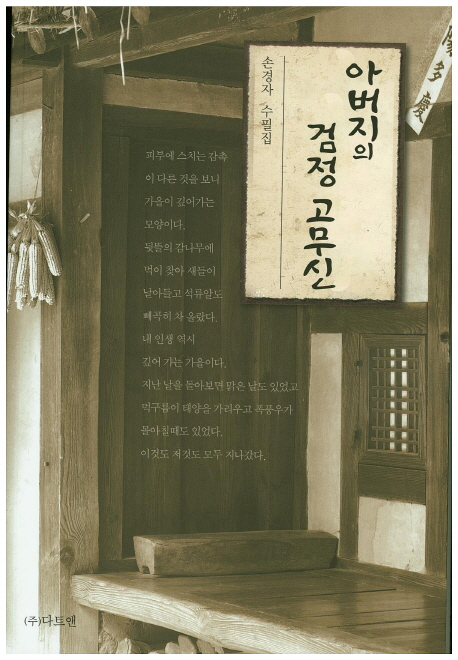 아버지의
검정 고무신
손경자 수필집
多慶
피부에 스치는 감촉
이 다른 것을 보니
가을이 깊어가는
모양이다.
뒷뜰의 감나무에
먹이 찾아 새들이
날아들고 석류알도
빼곡히 차 올랐다.
내 인생 역시
깊어 가는 가을이다.
지난 날을 돌아보면 맑은 날도 있었고
먹구름이 태양을 가리우고 폭풍우가
몰아칠때도 있었다.
이것도 저것도 모두 지나갔다.
(주)다트앤